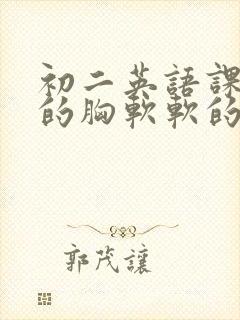 初二英語課
的胸軟軟的
郭茂讓